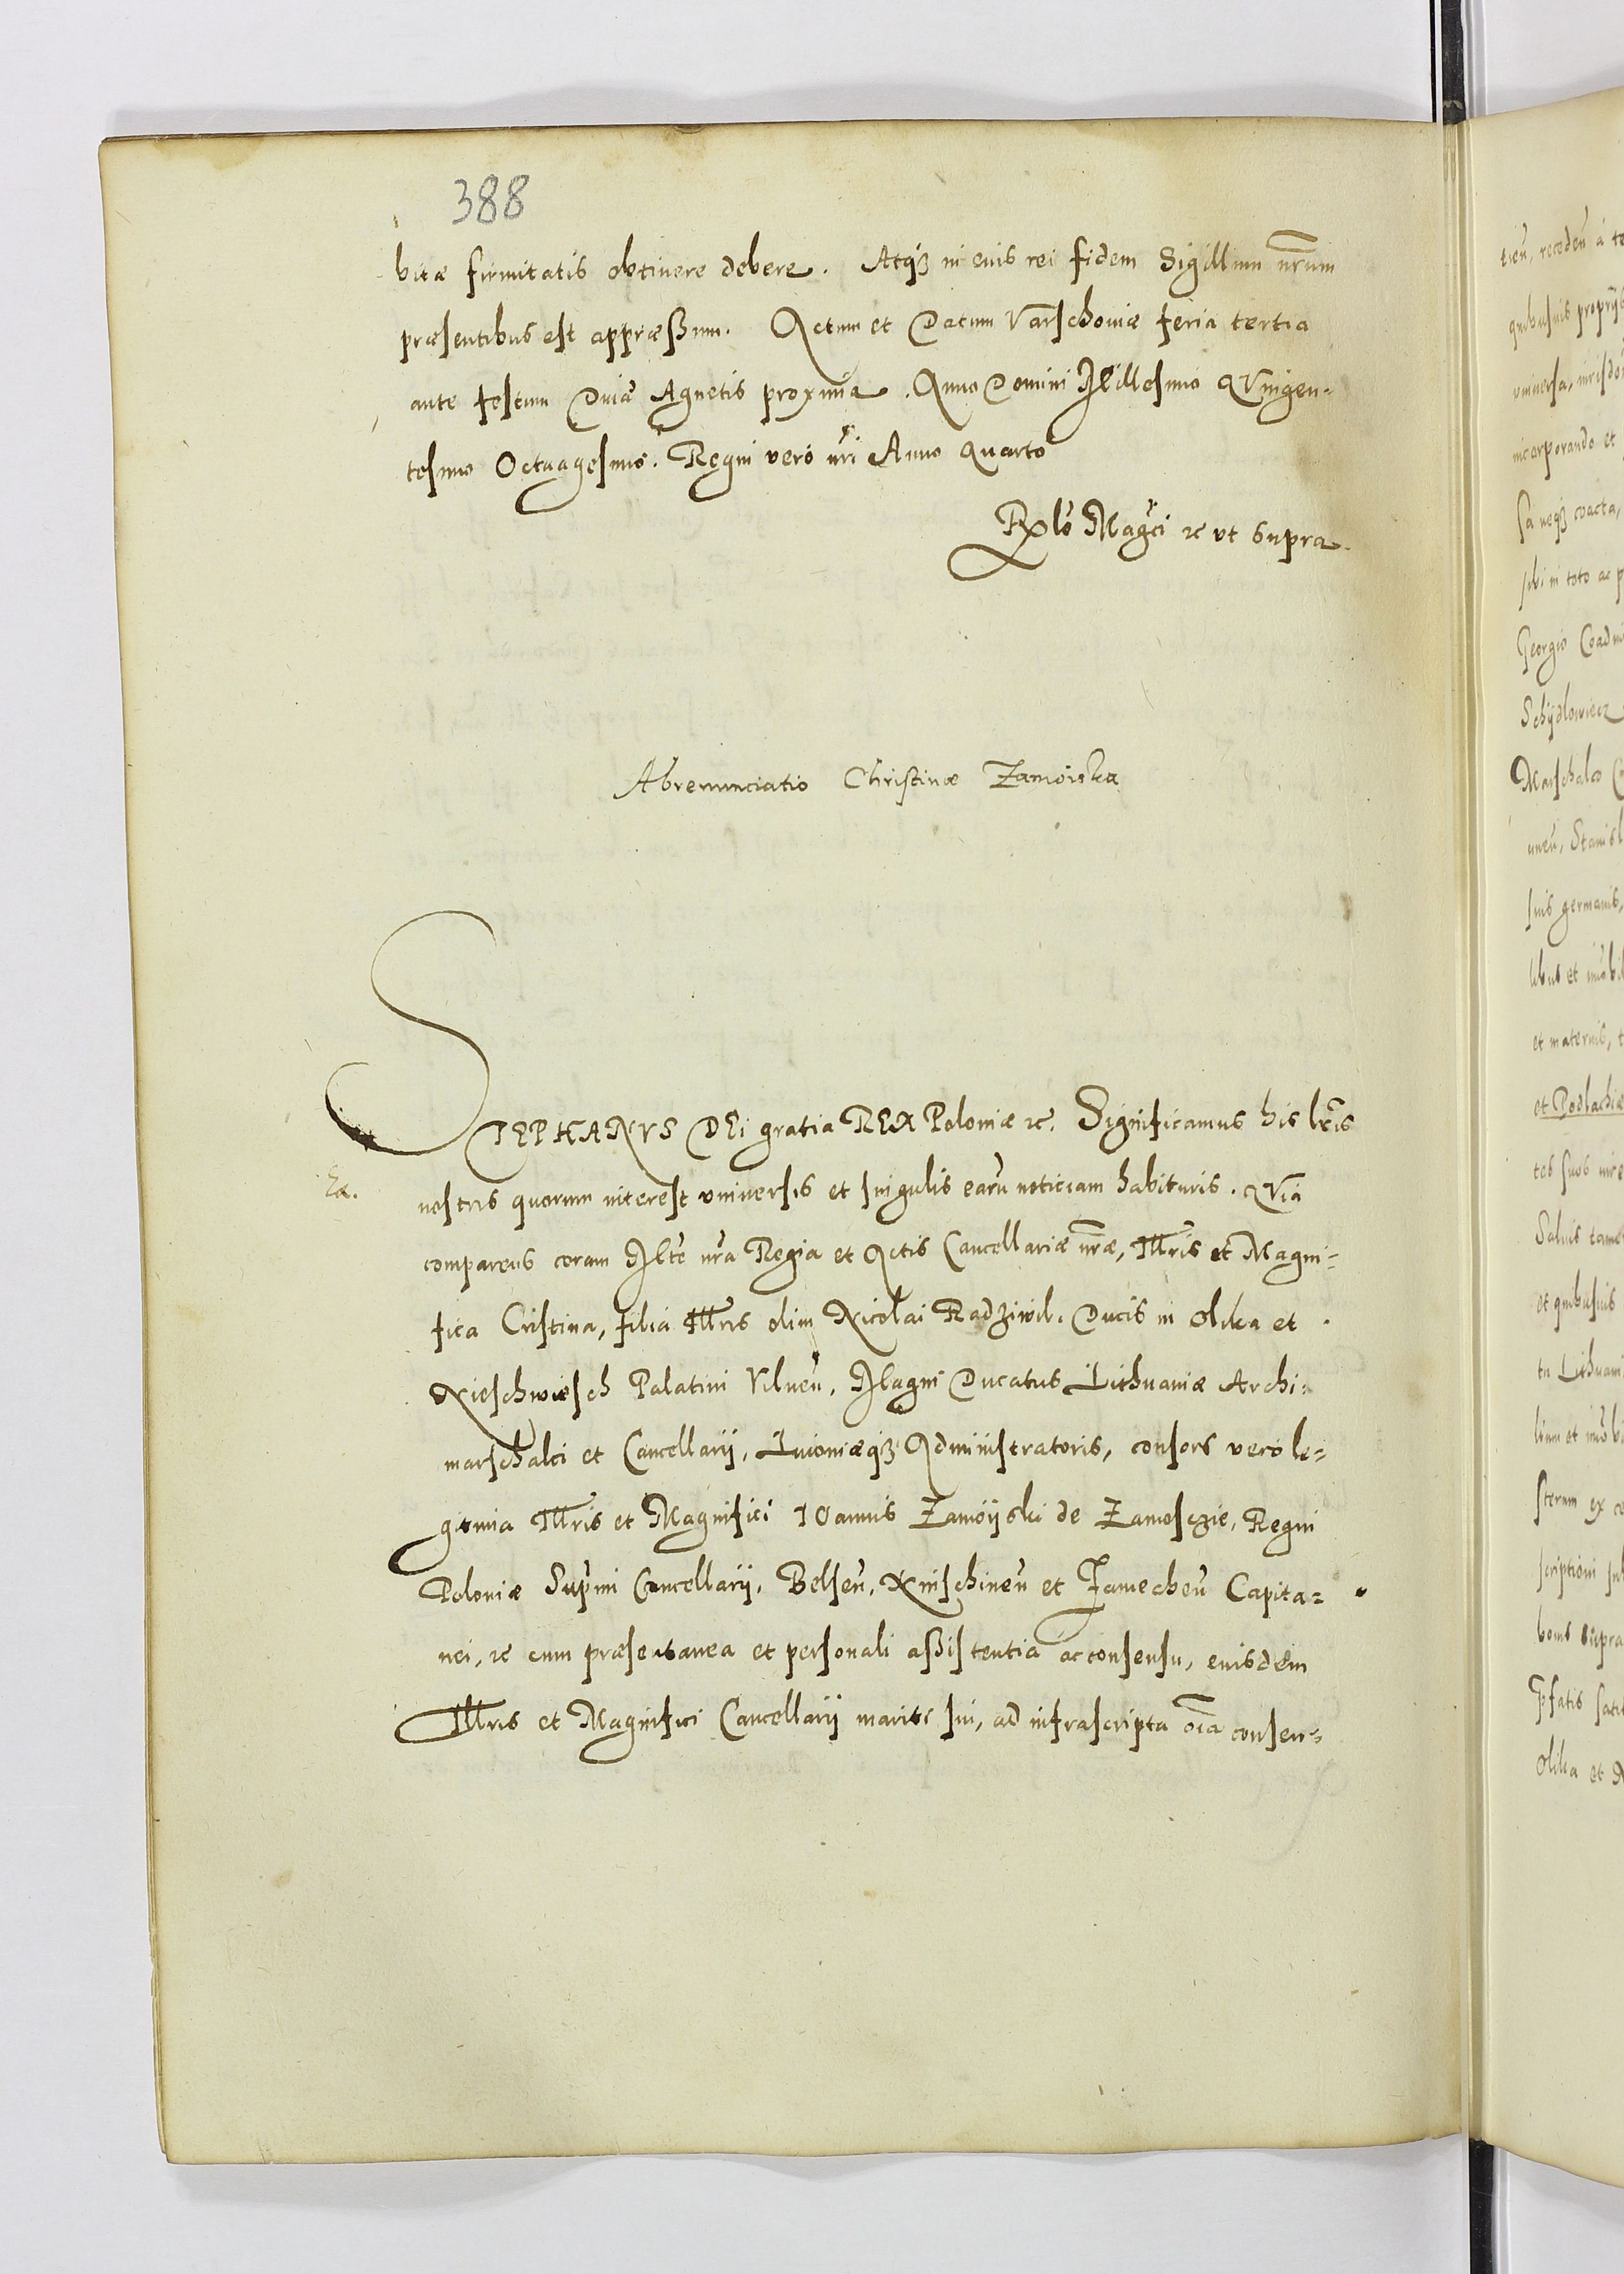 388
bitæ firmitatis obtinere debere. Atq3 in euis rei fidem Sigillum nrum
præsentibus est appræßum. Actum et Datum Varschoviæ feria tertia
ante festum Diuæ Agnetis proxima. Anno Domini Millesimo Quingen=
tesimo Octuagesimo. Regni vero nri Anno quarto
Rlo Magci etc ut supra.
Abrenunciatio Christinæ Zamoiska
STEPHANVS DEi gratia REX Poloniæ etc. Significamus his lris
Ex.
nostris quorum interest vniuersis et singulis earu noticiam habituris. Quia
comparens coram Mte nra Regia et Actis Cancellariæ nræ, Illris et Magni=
fica Cristina, filia Illris olim Nicolai Radziwil. Ducis in Olika et
Nieschwiesch Palatini Vilnen, Magni Ducatus Lithuaniæ Archi=
marschalci et Cancellarij, Liuoniæq3 Administratoris, consors vero le=
gitima Illris et Magnifici IOannis Zamoijski de Zamosczie, Regni
Poloniæ Supmi Cancellarij, Belsen, Knischinen et Zamechen Capita=
nei, etc cum præsentanea et personali aßistentia ac consensu, euisdem
Illris et Magnifici Cancellarij mariti sui, ad infrascripta oia consen=
tien, receden a
quibusuis proprijs
vniuersa,
incorporando et
sa neq3 coacta,
sibi in toto ac
Georgio
Schijdlowiecz
Marschalco
Stanisl
suis germanis,
et maternis,
et Podlachiæ
tes suos
Saluis tame
et quibusuis
tu Lithuani
lium et
sterum ex
scriptioni
bonis supra
pfatis
Olika et